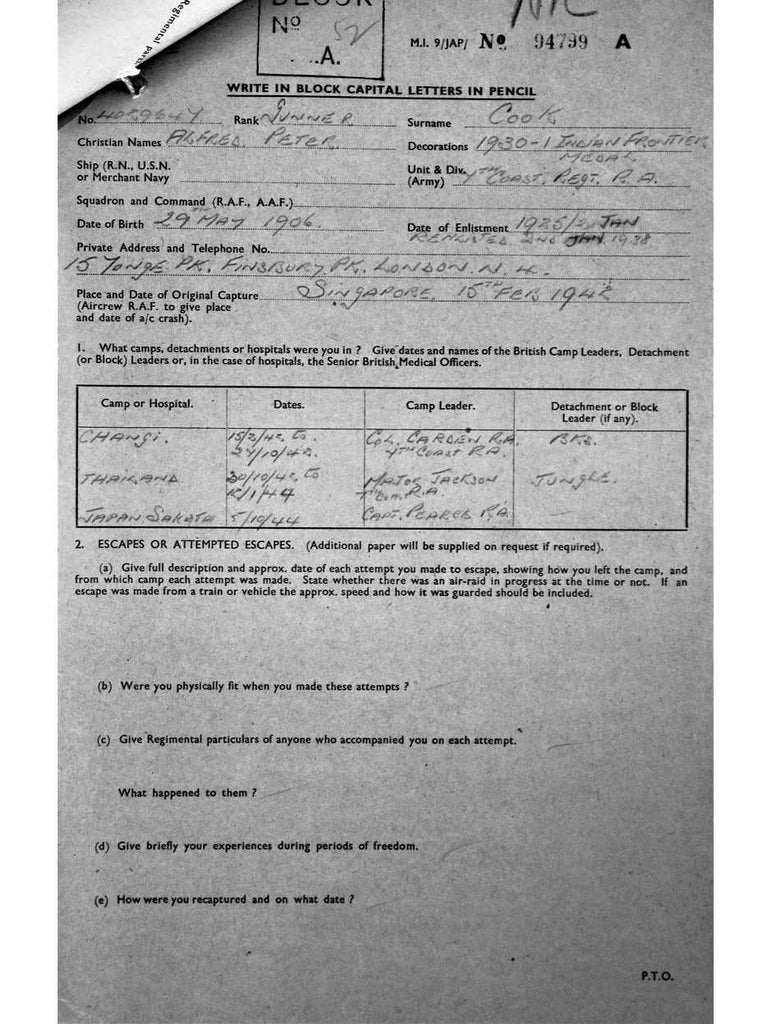 Regimental part
BLOCK
Nº 52
A.
NIL
M.I. 9/JAP/ Nº 94799 A
WRITE IN BLOCK CAPITAL LETTERS IN PENCIL
No. Rank GUNNER Surname COOK
Christian Names ALFRED PETER Decorations 1930-1 INDIAN FRONTIER MEDAL
Ship (R.N., U.S.N.
or Merchant Navy
Unit & Div. 7TH COAST. REGT. R.A.
(Army)
Squadron and Command (R.A.F., A.A.F.)
Date of Birth 29TH MAY 1906. Date of Enlistment 1925/2 JAN
2ND JAN 1938
Private Address and Telephone No.
15 TONGE PK, FINSBURY PK, LONDON. N. 4.
Place and Date of Original Capture SINGAPORE. 15TH FEB 1942
(Aircrew R.A.F. to give place
and date of a/c crash).
1. What camps, detachments or hospitals were you in ? Give dates and names of the British Camp Leaders, Detachment
(or Block) Leaders or, in the case of hospitals, the Senior British Medical Officers.
Camp or Hospital. Dates. Camp Leader. Detachment or Block
Leader (if any).
CHANGI. 15/2/42 to. COL. CARDEN R.A. BKS.
29/10/42. 7TH COAST R.A.
THAILAND 30/10/42 to MAJOR JACKSON JUNGLE.
R.A.
JAPAN SAKATA 5/10/44 CAPT. PEARCE R.A
2. ESCAPES OR ATTEMPTED ESCAPES. (Additional paper will be supplied on request if required).
(a) Give full description and approx. date of each attempt you made to escape, showing how you left the camp, and
from which camp each attempt was made. State whether there was an air-raid in progress at the time or not. If an
escape was made from a train or vehicle the approx. speed and how it was guarded should be included.
(b) Were you physically fit when you made these attempts ?
(c) Give Regimental particulars of anyone who accompanied you on each attempt.
What happened to them ?
(d) Give briefly your experiences during periods of freedom.
(e) How were you recaptured and on what date ?
P.T.O.